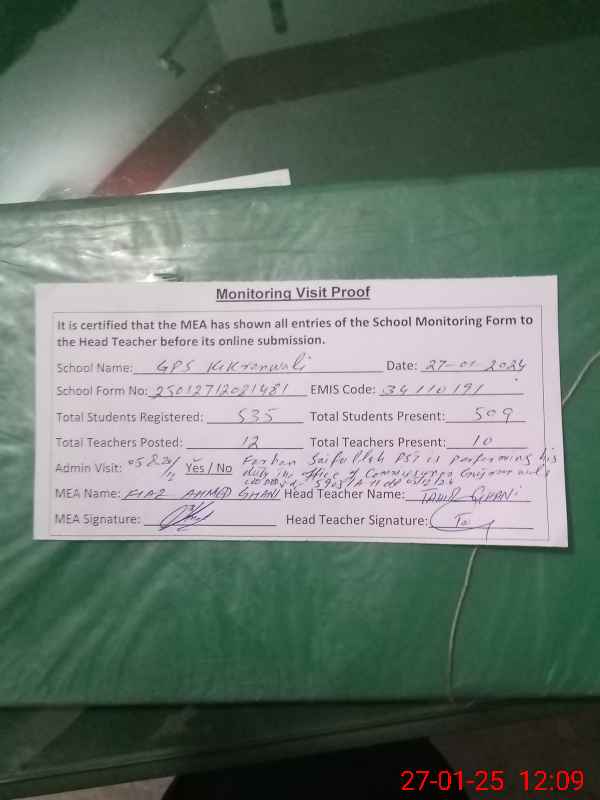 Monitoring Visit Proof
It is certified that the MEA has shown all entries of the School Monitoring Form to
the Head Teacher before its online submission.
School Name: GPS Kikranwali Date: 27-01-2024
School Form No: 25012712081481 EMIS Code: 34110191
Total Students Registered: 535 Total Students Present: 509
Total Teachers Posted: 12 Total Teachers Present: 10
Admin Visit: Yes / No Farhan Saifullah PST is performing his
duty in office of
MEA Name: FIAZ AHMED GHANI Head Teacher Name: TAHIR GHANI
MEA Signature: Head Teacher Signature:
27-01-25 12:09